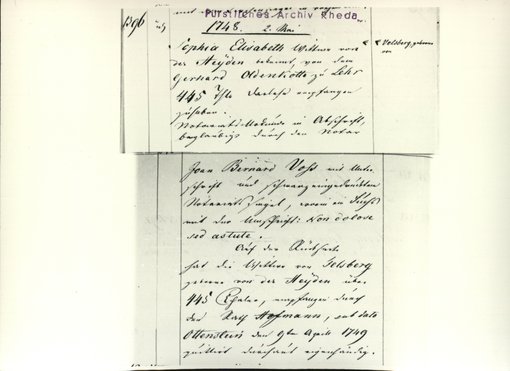 Fürstliches Archiv Rheda
B96
1748. 2. Mai
Sophia Elisabeth Wittwe von
der Heyden bekennt, von dem
Gerhard Oldenkotte zu Lehr
445 Thlr Darlehn empfangen
zu haben.
Notariatsurkunde in Abschrift,
beglaubigt durch den Notar
Velsberg, geborne
von
Joan Bernard Voss mit Unter
schrift und schwarz eingedruckten
Notariats Siegel, worin ein Fuchs
mit der Umschrift: Non dolose
sed astute.
Auf der Rückseite
hat die Wittwe von Velsberg
geborne von der Heyden über
445 Thaler, empfangen durch
den Hofmann, sub dato
Ottenstein den 9ten April 1749
quittirt eigenhändig.